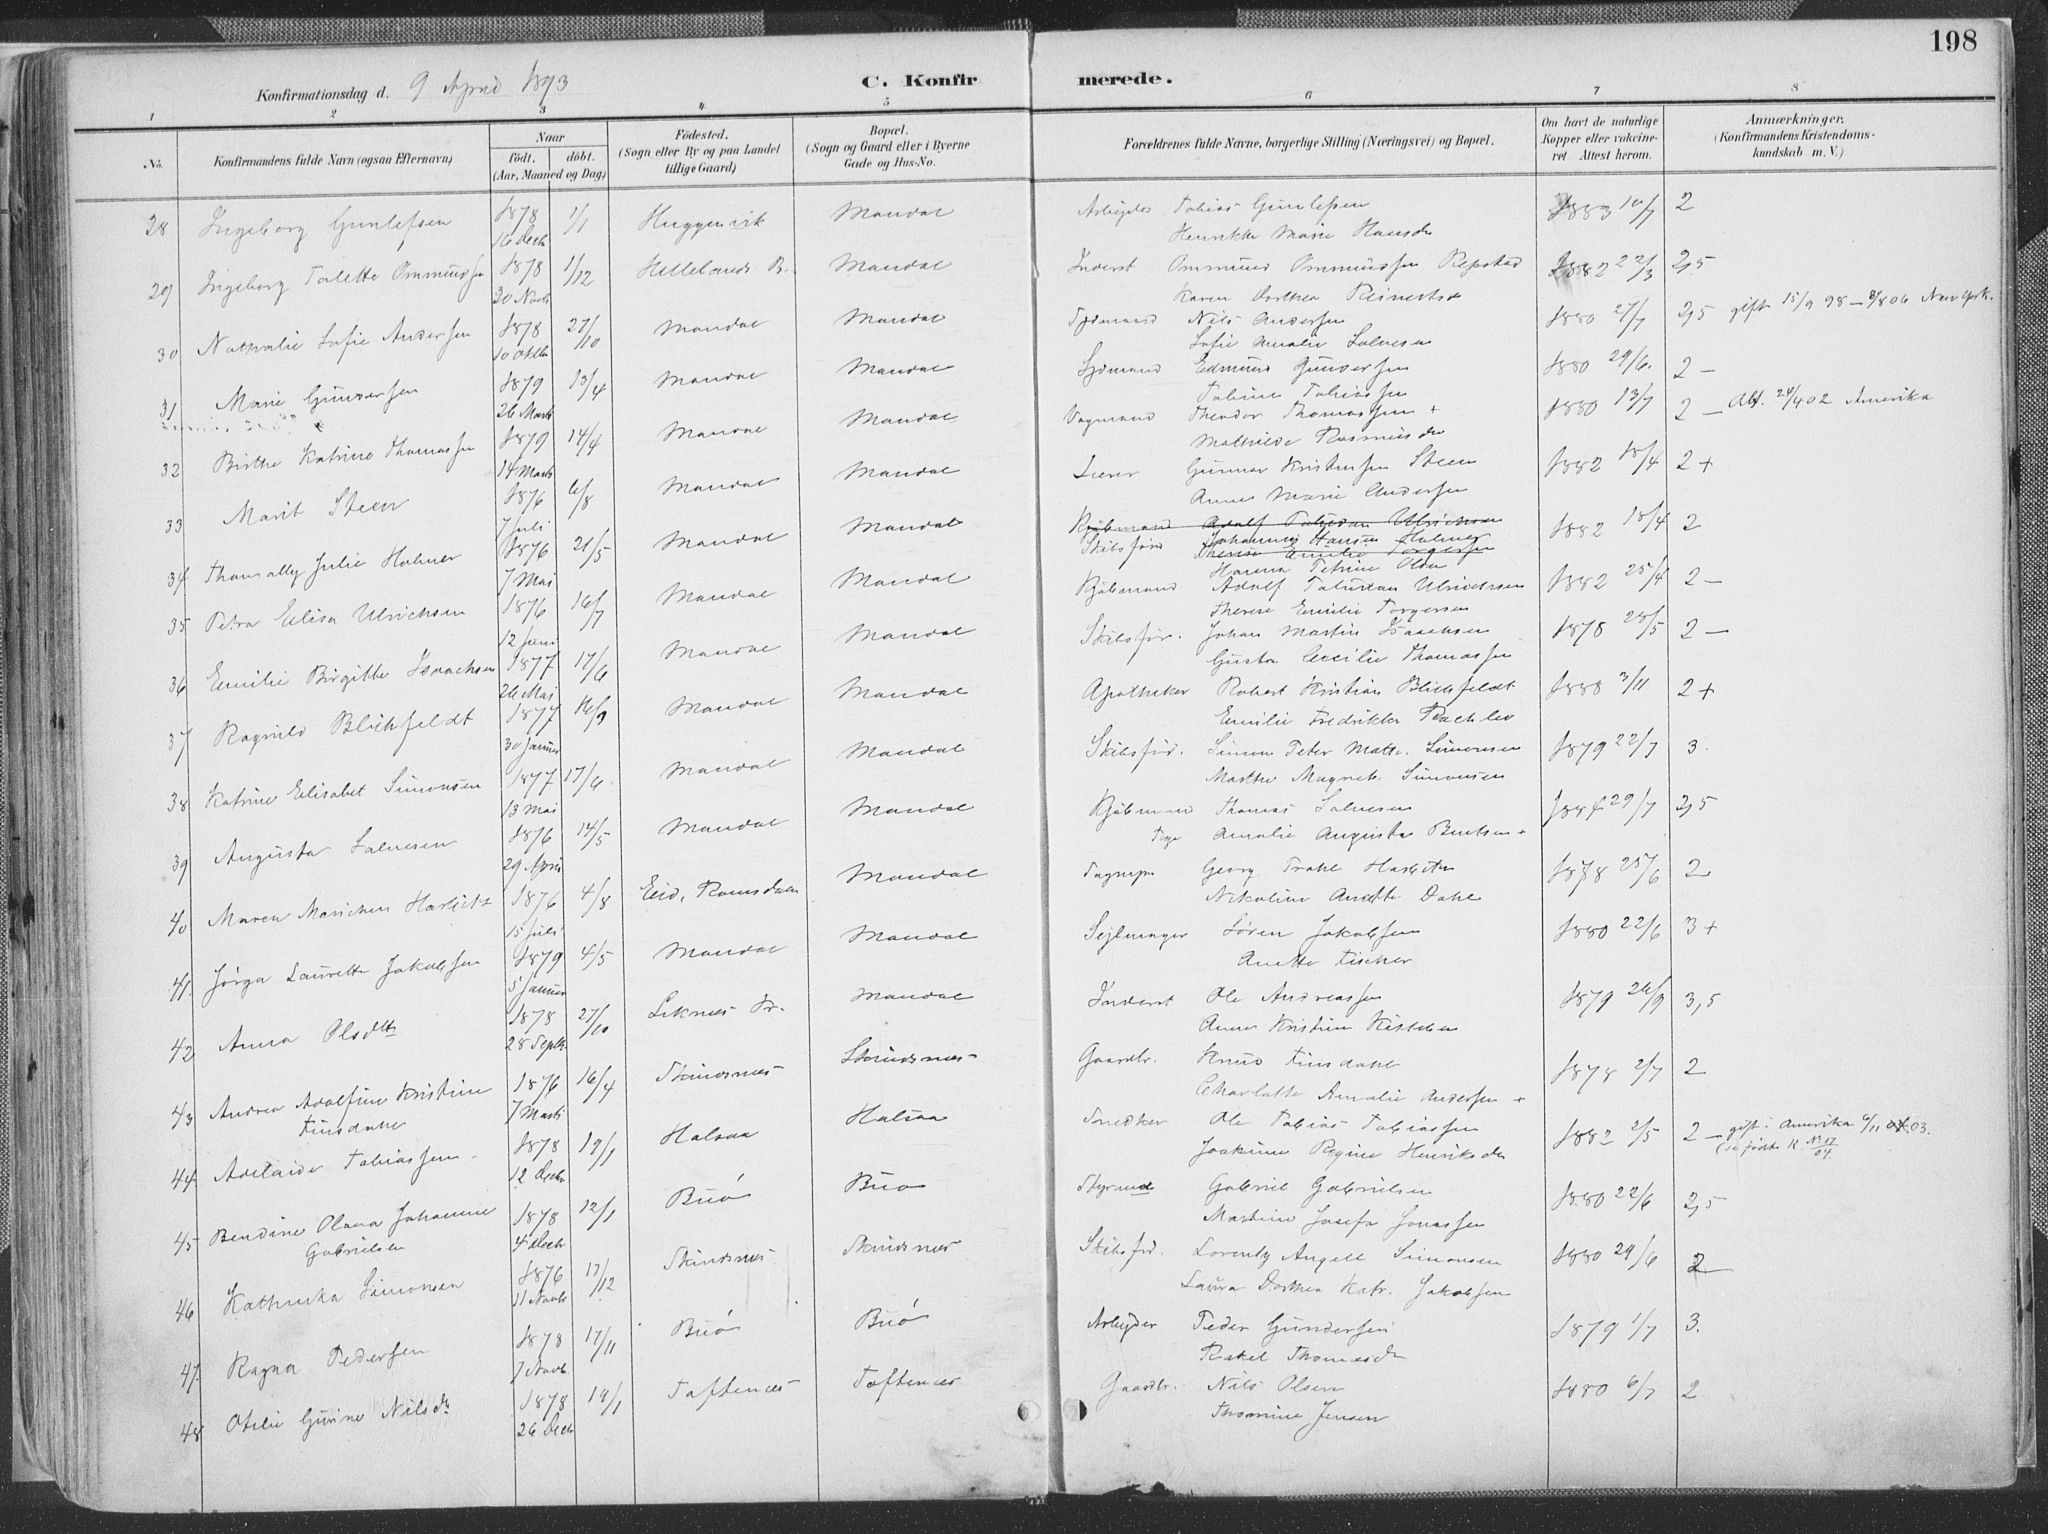 198
Konfirmationsdag d. 9 April 1893
C. Konfirmerede.
1 2 3 4 5 6 7 8
No.
Konfirmandens fulde Navn (ogsaa Efternavn)
Naar
født. døbt.
(Aar, Maaned og Dag)
Fødested.
(Sogn eller By og paa Landet
tillige Gaard)
Bopæl.
(Sogn og Gaard eller i Byerne
Gade og Hus-No.
Forældrenes fulde Navne, borgerlige Stilling (Næringsvei) og Bopæl.
Om havt de naturlige
Kopper eller vakcine-
ret Attest herom.
Anmærkninger,
(Konfirmandens Kristendoms-
kundskab m. V.)
28 Ingeborg Gunlefsen 1878 16 Decb 1/1 Huggenvik Mandal Arbeider Tobias Gunlefsen 1883 10/7 2
Henrikke Marie Hansd
29 Ingeborg Talette Ommundsen 1878 20 Novb 1/12 Hellelands P. Mandal Inderst Ommund Ommundsen Repstad 1882 22/3 2,5
Karen Dorthea Reinertsd
30 Nathalie Sofie Andersen 1878 10 Oktb 27/10 Mandal Mandal Sjømand Nils Andersen 1880 27/7 2,5 gift 15/9 98 — 8/8 06 New York.
Sofie Amalie Salvesen
31 Marie Gundersen 1879 26 Marts 13/4 Mandal Mandal Sjømand Edmund Gundersen 1880 29/6. 2 —
Tobine Tobiassen
32 Birthe Katrine Thomassen 1879 14 Marts 14/4 Mandal Mandal Vognmand Theodor Thomassen + 1880 13/7 2 — Att. 24/4 02 Amerika
Mathilde Rasmusdr
33 Marit Steen 1876 7 Juli 6/8 Mandal Mandal Lærer Gunnar Kristensen Steen 1882 18/4 2 +
Anne Marie Andersen
34 Thomally Julie Holmer 1876 7 Mai 21/5 Mandal Mandal Kjøbmand Adolf Paludan Ulrichsen 1882 18/4 2
Skibsfører Johannes Hansen Holmer
Therese Emilie Torgersen
Hanna Petrine Olsen
35 Petra Elisa Ulrichsen 1876 12 Juni 16/7 Mandal Mandal Kjøbmand Adolf Paludan Ulrichsen 1882 25/4 2 —
Therese Emilie Torgersen
36 Emilie Birgitte Isaachsen 1877 26 Mai 17/6 Mandal Mandal Skibsfør. Johan Martin Isaachsen 1878 28/5 2 —
Gusta Cecilie Thomassen
37 Ragnild Blichfeldt 1877 30 Januar Mandal Mandal Apotheker Robert Kristian Blichfeldt 1888 3/11 2 +
Emilie Fredrikke
38 Katrine Elisabet Simonsen 1877 13 Mai 17/6 Mandal Mandal Skibsfør. Simon Peter Math. Simonsen 1879 22/7 3.
Marthe Magnete Simonsen
39 Augusta Salvesen 1876 29 April 14/5 Mandal Mandal Kjøbmand Thomas Salvesen 1884 29/7 2,5
Amalie Augusta Bentsen +
40 Maren Marichen 1876 15 Juli 4/8 Eid, Romsdalen Mandal Georg 1878 25/6 2
Nikoline Anette Dahl
41. Jørga Laurette Jakobsen 1879 5 Januar 4/5 Mandal Mandal Sejlmager Søren Jakobsen 1880 22/6 3 +
Anette Fischer
42 Anna Olsdtr 1878 28 Septb. 27/10 Leknes Pr. Mandal Inderst Ole Andreassen 1879 26/9 3,5
Anne Kristine
43 Andrea Adolfine Kristine 1876 7 Marts 16/4 Skindsnes Skindsnes Gaardbr. Knud Finsdahl 1878 2/7 2
Finsdahl Charlotte Amalie Andersen +
44 Adelaide Tobiassen 1878 12 Decb 19/1 Halsaa Halsaa Snedker Ole Tobias Tobiassen 1882 2/5 2 — gift i Amerika 6/11 03.
Joakime Regine Henriksdr (se fødte K. No 17/04.
45 Bendine Olava Johanne 1878 4 Decb 12/1 Buø Buø Styrmd Gabriel Gabrielsen 1880 22/6 2,5
Gabrielsen Martine Josefa Jonassen
46 Kathinka Simonsen 1876 11 Novb 17/12 Skindsnes Skindsnes Skibsfør. Lorentz Angell Simonsen 1880 29/6 2
Laura Dorthea Katr. Jakobsen
47. Ragna Pedersen 1878 7 Novb 17/11 Buø Buø Arbeider Peder Gundersen 1879 1/7 3.
Rakel Thomasdr
48 Otilie Gurine Nilsdr 1878 26 Decb 19/1 Toftenes Toftenes Gaardbr. Nils Olsen 1880 6/7 2
Thomine Jensen